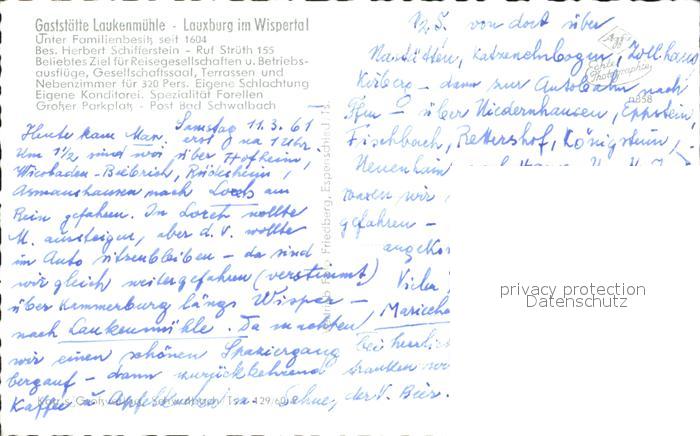 Gaststätte Laukenmühle - Lauxburg im Wispertal
Unter Familienbesitz seit 1604
Bes. Herbert Schifferstein - Ruf Strüth 155
Beliebtes Ziel für Reisegesellschaften u. Betriebs-
ausflüge, Gesellschaftssaal, Terrassen und
Nebenzimmer für 320 Pers. Eigene Schlachtung
Eigene Konditorei. Spezialität Forellen
Großer Parkplatz - Post Bad Schwalbach
Samstag 11.3.61
Heute kam Max erst na 1 Uhr.
Um 1/2 sind wir über Hofheim,
Wiesbaden-Biebrich, Rüdesheim,
Assmannshausen nach Lorch am
Rein gefahren. In Lorch wollte
M. aussteigen, aber d. V. wollte
im Auto sitzenbleiben - da sind
wir gleich weitergefahren (verstimmt)
über Kammerburg längs Wisper -
nach Laukenmühle. Da machten
wir einen schönen Spaziergang
bergauf - dann zurückkehrend
Kaffee u. Apfelkuchen Sahne, der V. Bier.
von dort über
Nastätten, Katzenelnbogen, Zollhaus
Kirberg - dann zur Autobahn nach
Ffm - über Niedernhausen, Eppstein,
Fischbach, Rettershof, Königstein,
Neuenhain
waren wir
gefahren -
angekom
Viela
Mariechen
bei herrlich
tranken wir
Echte Photographie
n858
Friedberg, Espenschied Ts.
privacy protection
Datenschutz